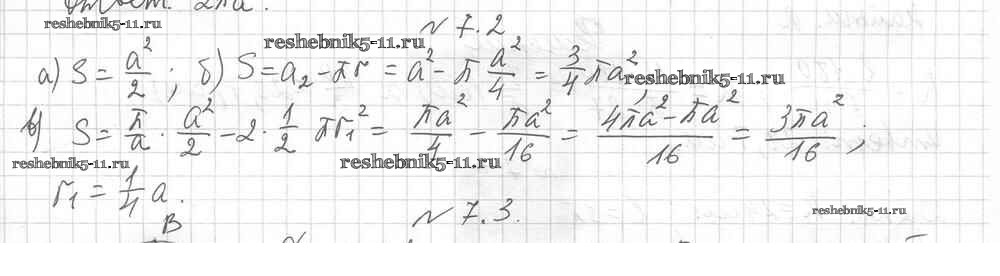 Ответ: 2πa.
reshebnik5-11.ru
N 7.2
reshebnik5-11.ru
а) S = a²/2 ; б) S = a₂ - πr = a² - π a²/4 = 3/4 πa²,
reshebnik5-11.ru
в) S = π/a · a²/2 - 2 · 1/2 πr₁² = πa²/4 - πa²/16 = (4πa² - πa²)/16 = 3πa²/16 ;
reshebnik5-11.ru
reshebnik5-11.ru
r₁ = 1/4 a.
N 7.3.
reshebnik5-11.ru
B